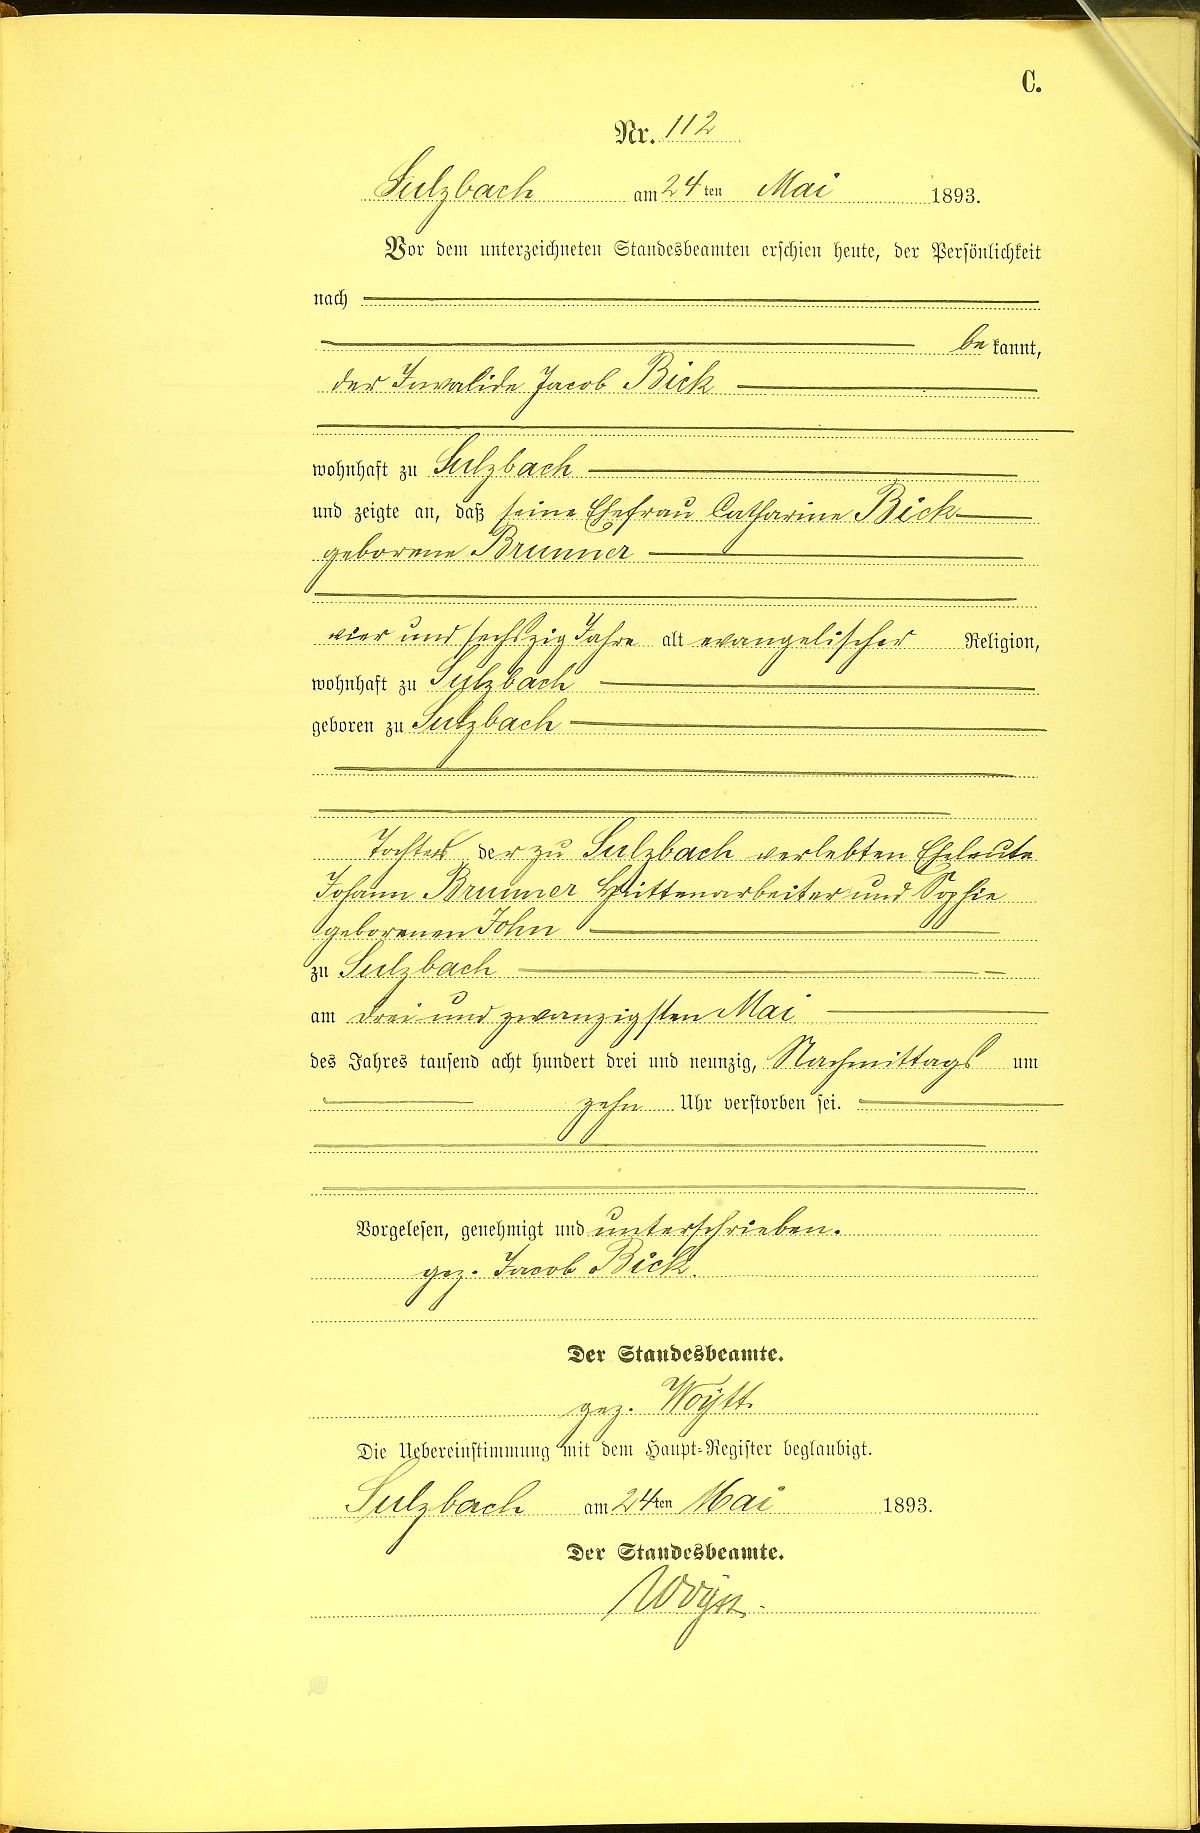 C.
Nr. 112
Sulzbach am 24ten Mai 1893.
Vor dem unterzeichneten Standesbeamten erschien heute, der Persönlichkeit
nach
be kannt,
der Invalide Jacob Bick
wohnhaft zu Sulzbach
und zeigte an, daß seine Ehefrau Catharine Bick
geborene Brunner
vier und sechszig Jahre alt evangelischer Religion,
wohnhaft zu Sulzbach
geboren zu Sulzbach
Tochter der zu Sulzbach verlebten Eheleute
Johann Brunner Hüttenarbeiter und Sophie
geborenen John
zu Sulzbach
am drei und zwanzigsten Mai
des Jahres tausend acht hundert drei und neunzig, Nachmittags um
zehn Uhr verstorben sei.
Vorgelesen, genehmigt und unterschrieben.
gez. Jacob Bick.
Der Standesbeamte.
gez. Woytt.
Die Uebereinstimmung mit dem Haupt-Register beglaubigt.
Sulzbach am 24ten Mai 1893.
Der Standesbeamte.
Woytt.